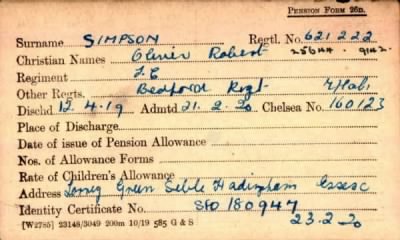 PENSION FORM 26n.
Surname SIMPSON Regtl. No. 621222
Christian Names Oliver Robert 25644. 9142.
Regiment L.C
Other Regts. Bedford Regt
Dischd 12.4.19 Admtd 21.2.20 Chelsea No. 160123
Place of Discharge
Date of issue of Pension Allowance
Nos. of Allowance Forms
Rate of Children's Allowance
Address Green Sible Hadingham Essex
Identity Certificate No. SFO 180947
23.2.20
[W2785] 23148/3049 200m 10/19 585 G & S